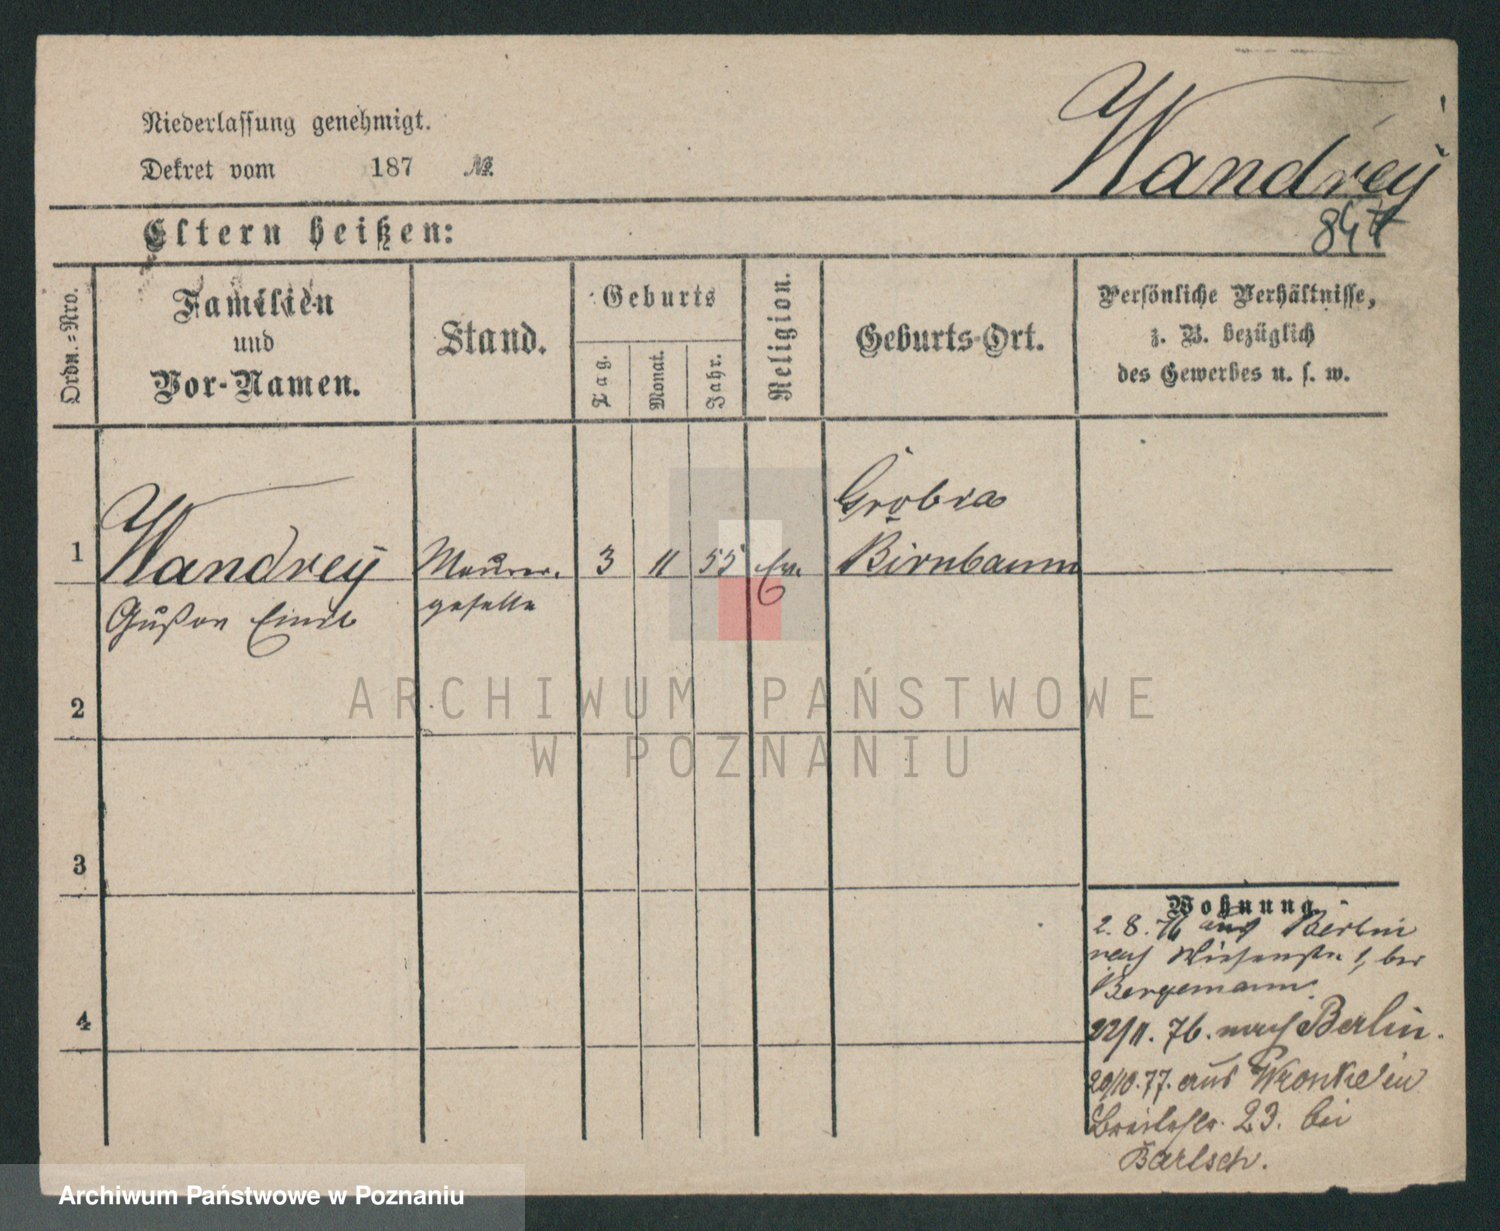 Niederlassung genehmigt.
Dekret vom 187 №
Wandrey
847
Eltern heißen:
Ordn.=Nro.
Familien
und
Vor-Namen.
Stand.
Geburts
Tag.
Monat.
Jahr.
Religion.
Geburts-Ort.
Persönliche Verhältnisse,
z. B. bezüglich
des Gewerbes u. s. w.
Grobia
1 Wandrey Maurer- 3 11 55 Ev. Birnbaum
Gustav Emil geselle
2
3
4
Wohnung.
2. 8. 76 aus Berlin
nach Wiesenstr. 1, bei
Bergemann.
22/11. 76. nach Berlin.
20/10. 77. aus Wronke in
Breitestr. 23. bei
Bartsch.
ARCHIWUM PAŃSTWOWE
W POZNANIU
Archiwum Państwowe w Poznaniu